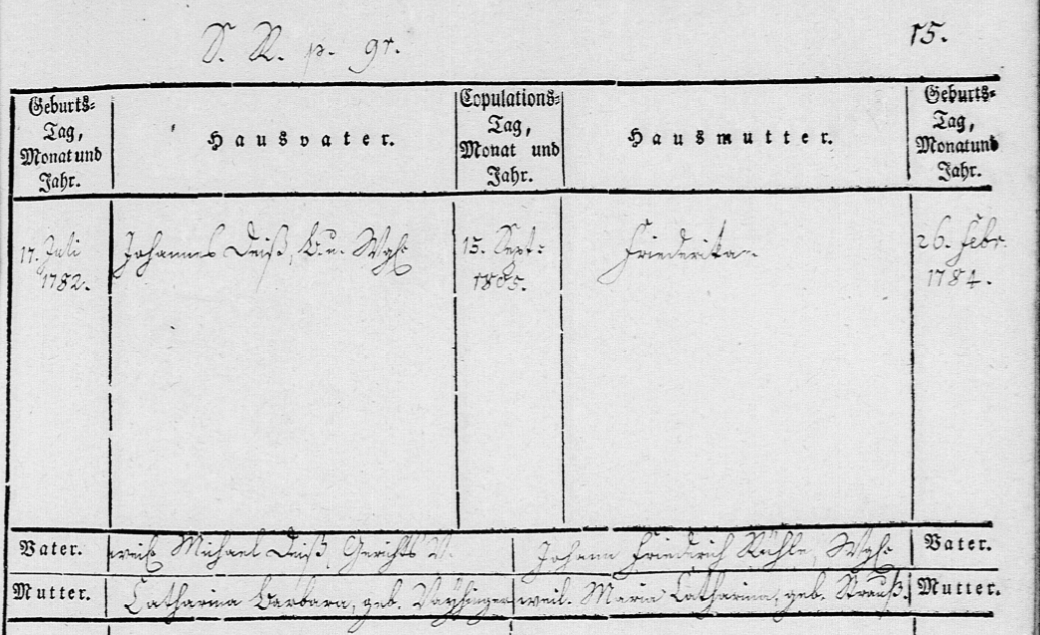 S. R. p. 91.
15.
Geburts-
Tag,
Monat und
Jahr.
Hausvater.
Copulations-
Tag,
Monat und
Jahr.
Hausmutter.
Geburts-
Tag,
Monat und
Jahr.
17. Juli
1782.
Johannes Deiß, B. u. Wgh.
15. Sept.
1805.
Friederika
26. Febr.
1784.
Vater.
weil. Michael Deiß, Gerichts V.
Johann Friedrich Rühle, Wgh.
Vater.
Mutter.
Catharina Barbara, geb.
weil. Maria Catharina, geb. Strauß.
Mutter.